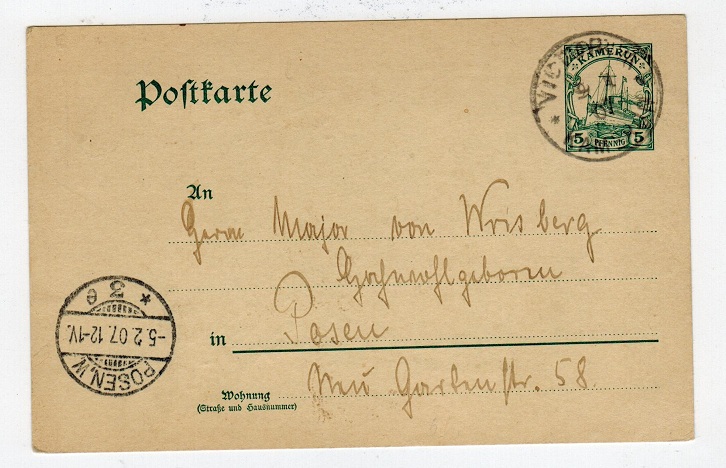 Postkarte
KAMERUN
5 PFENNIG 5
VICTORIA
An
Herrn Major von Wrisberg
Hochwohlgeboren
in Posen
Neu Gartenstr. 58.
Wohnung
(Straße und Hausnummer)
POSEN.W.
-5.2.07.12-1V.
* 3 e